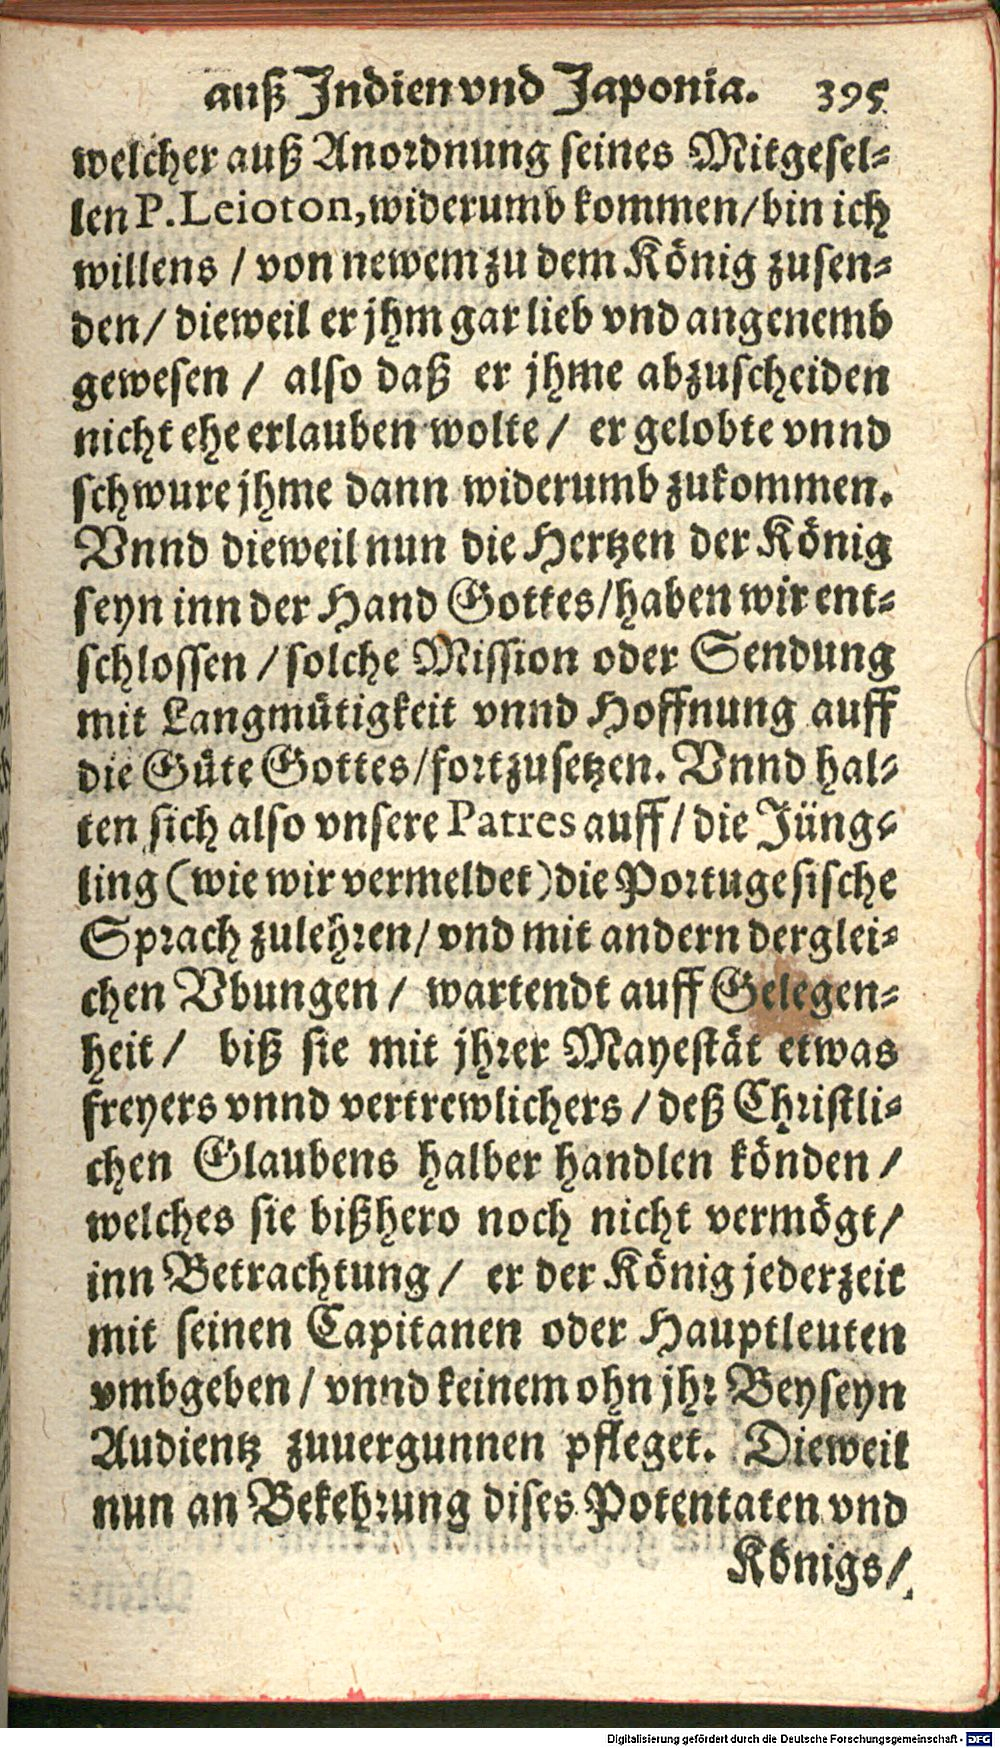 auß Jndien vnd Japonia. 395
welcher auß Anordnung seines Mitgesel-
len P. Leioton, widerumb kommen/ bin ich
willens / von newem zu dem König zusen-
den/ dieweil er jhm gar lieb vnd angenemb
gewesen / also daß er jhme abzuscheiden
nicht ehe erlauben wolte / er gelobte vnnd
schwure jhme dann widerumb zukommen.
Vnnd dieweil nun die Hertzen der König
seyn inn der Hand Gottes/ haben wir ent-
schlossen / solche Mission oder Sendung
mit Langmütigkeit vnnd Hoffnung auff
die Güte Gottes/ fortzusetzen. Vnnd hal-
ten sich also vnsere Patres auff / die Jüng-
ling (wie wir vermeldet) die Portugesische
Sprach zulehren/ vnd mit andern derglei-
chen Vbungen / wartendt auff Gelegen-
heit / biß sie mit jhrer Mayestät etwas
freyers vnnd vertrewlichers / deß Christli-
chen Glaubens halber handlen könden /
welches sie bißhero noch nicht vermögt/
inn Betrachtung / er der König jederzeit
mit seinen Capitanen oder Hauptleuten
vmbgeben / vnnd keinem ohn jhr Beyseyn
Audientz zuuergunnen pfleget. Dieweil
nun an Bekehrung dises Potentaten vnd
Königs/
Digitalisierung gefördert durch die Deutsche Forschungsgemeinschaft - DFG